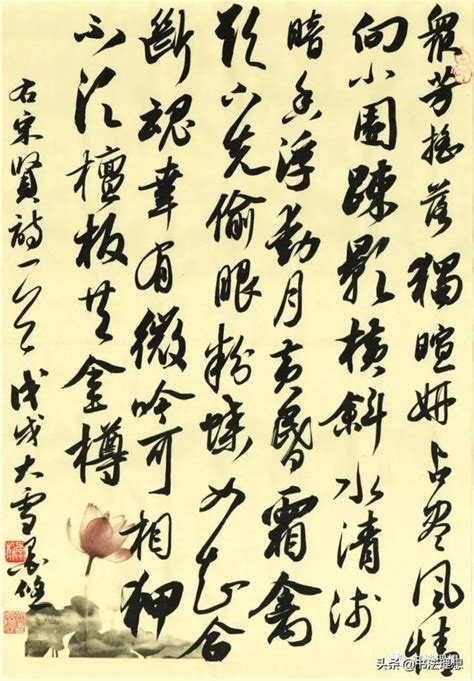 衆芳搖落獨暄妍占盡風情
向小園疎影橫斜水清淺
暗香浮動月黃昏霜禽
欲下先偷眼粉蝶如知合
斷魂幸有微吟可相狎
不須檀板共金樽
右宋賢詩一首戊戌大雪
头条@书法理想